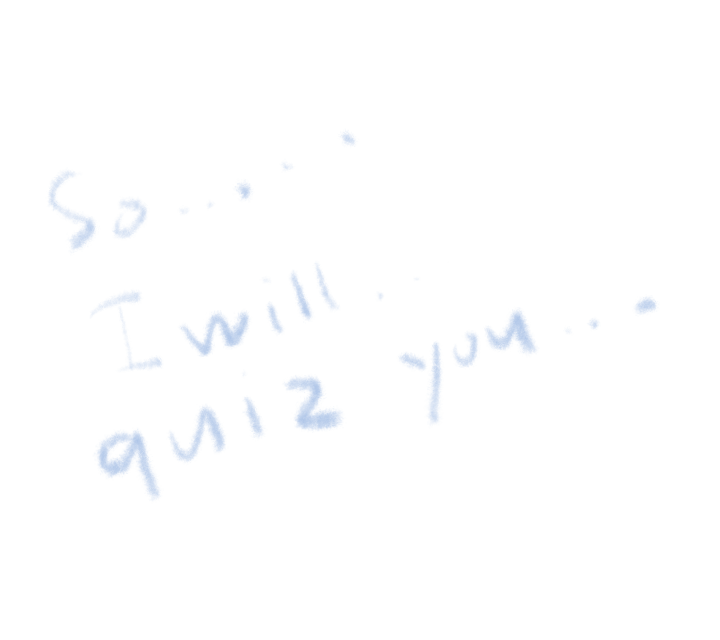 So.....
I will..
quiz you...